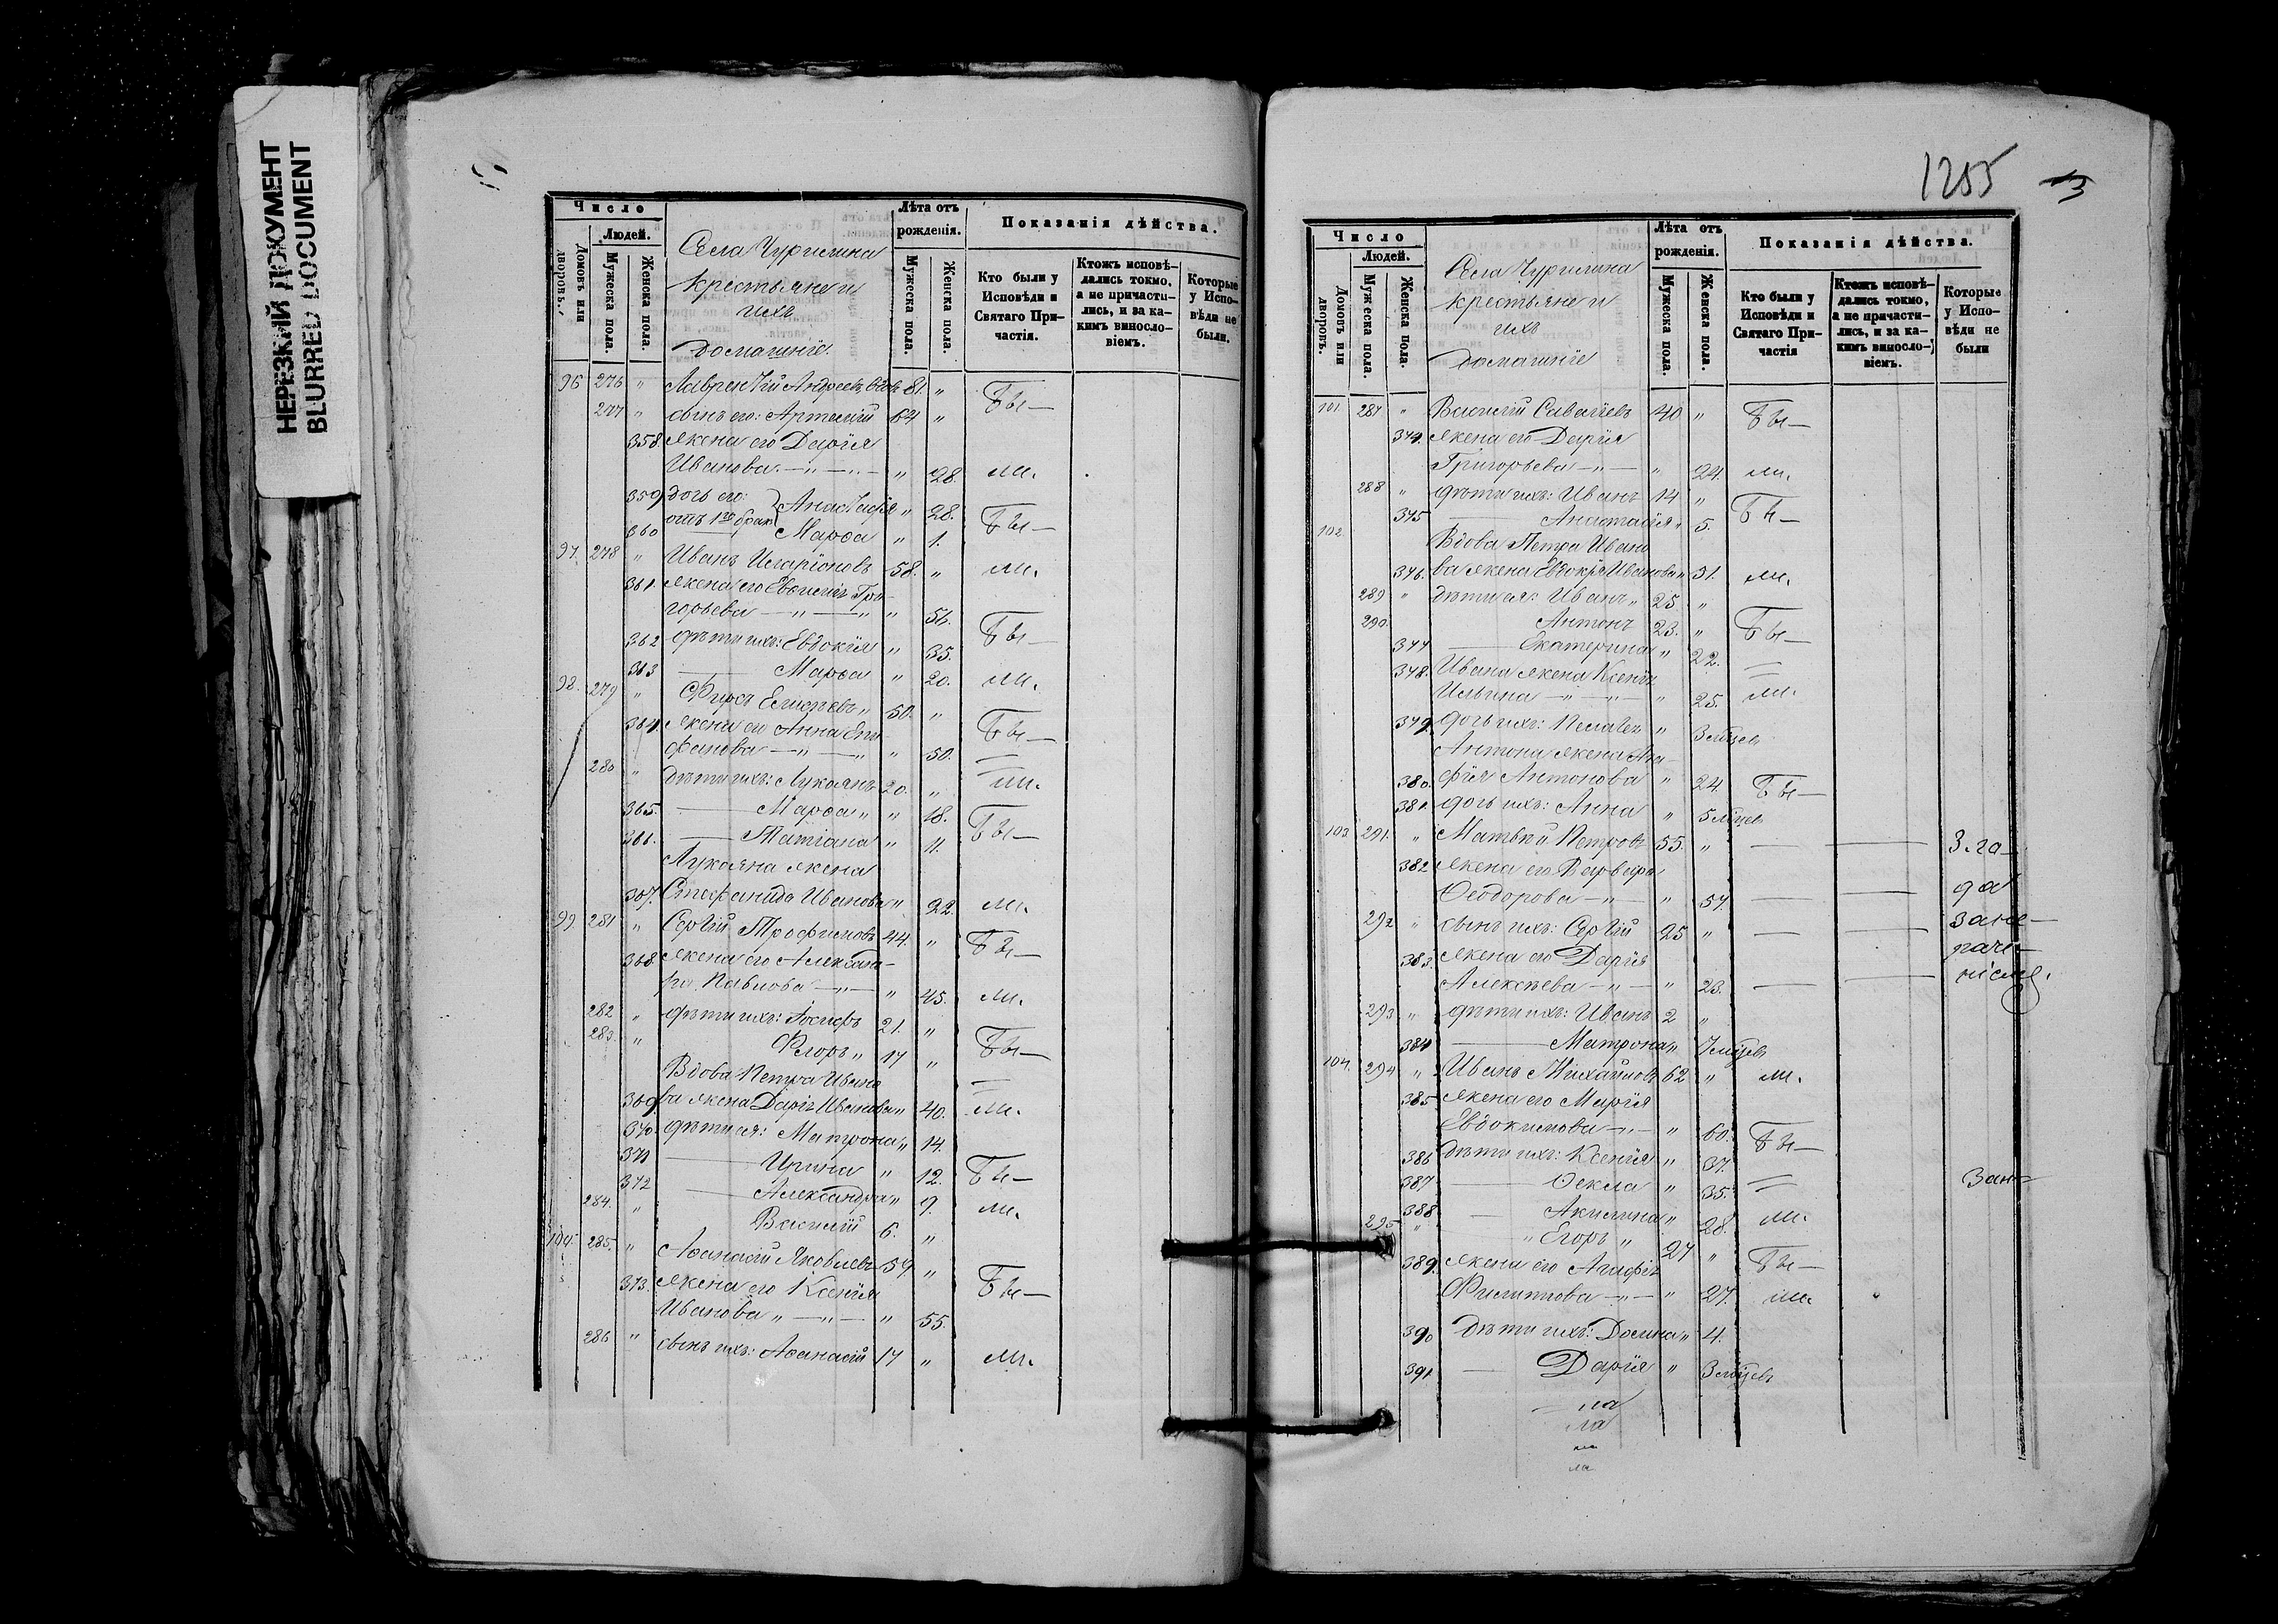 НЕРЕЗКИЙ ДОКУМЕНТ
BLURRED DOCUMENT
Число
Людей.
Домовъ или дворовъ.
Мужеска пола.
Женска пола.
Села Чурилина
крестьяне и
ихъ
домашніе.
Лѣта отъ рожденія.
Мужеска пола.
Женска пола.
Показанія дѣйства.
Кто были у Исповѣди и Святаго Причастія.
Ктожъ исповѣдались токмо, а не причастились, и за какимъ винословіемъ.
Которые у Исповѣди не были.
96 276 " Лаврентій Андреевъ 81. "
277 " сынъ его: Артемій 64 " Бы—
358. жена его Дарія
Иванова. — " — " 28. ли.
359. дочь его:
отъ 1го брак Анастасія " 28. Бы—
360 Марѳа " 1.
97. 278 " Иванъ Иларіоновъ 58. " ли.
361. жена его Евѳимія Гри-
горьева — " — " 51.
362 дѣти ихъ: Евдокія " 35. Бы—
363 — Марѳа " 20. ли.
98. 279 " Фирсъ Елисѣевъ " 50. "
364. жена его Анна Епи Бы—
фанова — " — " 50.
280 " дѣти ихъ: Лукоянъ 20. " ли.
365. — Марѳа " " 18. Бы—
366. — Татіана " 11.
Лукояна жена
367. Стефанида Иванова " 22. ли.
99 281 " Сергій Трофимовъ 44. " Бы—
368. жена его Александ-
ра Павлова — " — " 45. ли.
282 " дѣти ихъ: Іосифъ 21. "
283. " Егоръ " 17 " Бы—
Вдова Петра Ивано
369 ва жена Дарія Иванова " 40. ли.
370. дѣти ея: Матрона " 14.
371 — Ирина " 12. Бы—
372 — Александра " 9. ли.
284. " Василій 6. "
100. 285. " Аѳанасій Яковлевъ 59 "
373. жена его Ксенія Бы—
Иванова " — " — " 55.
286 " сынъ ихъ: Аѳанасій 17 " ли.
1255
Число
Людей.
Домовъ или дворовъ.
Мужеска пола.
Женска пола.
Села Чурилина
крестьяне и
ихъ
домашніе
Лѣта отъ рожденія.
Мужеска пола.
Женска пола.
Показанія дѣйства.
Кто были у Исповѣди и Святаго Причастія
Ктожъ исповѣдались токмо, а не причастились, и за какимъ винословіемъ.
Которые у Исповѣди не были
101. 287 " Василій Саваіевъ 40 " Бы—
374. жена его Дарія
Григорьева — " — " 24. ли.
288 " дѣти ихъ: Иванъ 14 "
375 — Анастасія " 5. Бы—
102. Вдова Петра Ивано
376. ва жена Евдокія Иванова " 51. ли.
289 " дѣти ея: Иванъ " 25 "
290. Антонъ 23. " Бы—
377 — Екатерина " 22.
378. Ивана жена Ксенія
Ильина — " — " 25. ли.
379. дочь ихъ: Пелагія " 3 мѣсцев
Антона жена Ага-
380. фія Антонова " 24 Бы—
381. дочь ихъ: Анна " 5 мѣсцев
103. 291. " Матвѣй Петровъ 55. " — — 3. го-
382 жена его Варвара
Ѳеодорова — " — " 54. — — да
292 " сынъ ихъ: Сергій 25 " — — за не-
383. жена его Дарія раче-
Алексѣева — " — " 23. — — ніемъ.
293 " дѣти ихъ: Иванъ 2 "
384 — Матрона " 7 мѣсцев
104. 294 " Иванъ Михайловъ 62 " ли.
385 жена его Марія
Евдокимова — " — " 60. Бы—
386 дѣти ихъ: Ксенія " 37.
387 — Ѳекла " 35.
388 — Акилина " 28. ли.
295 " " Егоръ " 27 "
389. жена его Агафія Бы—
Филиппова — " — " 27. ли
390 дѣти ихъ: Домна " 4.
391. — Дарія " 3 мѣсцевъ
ла
ла
ла